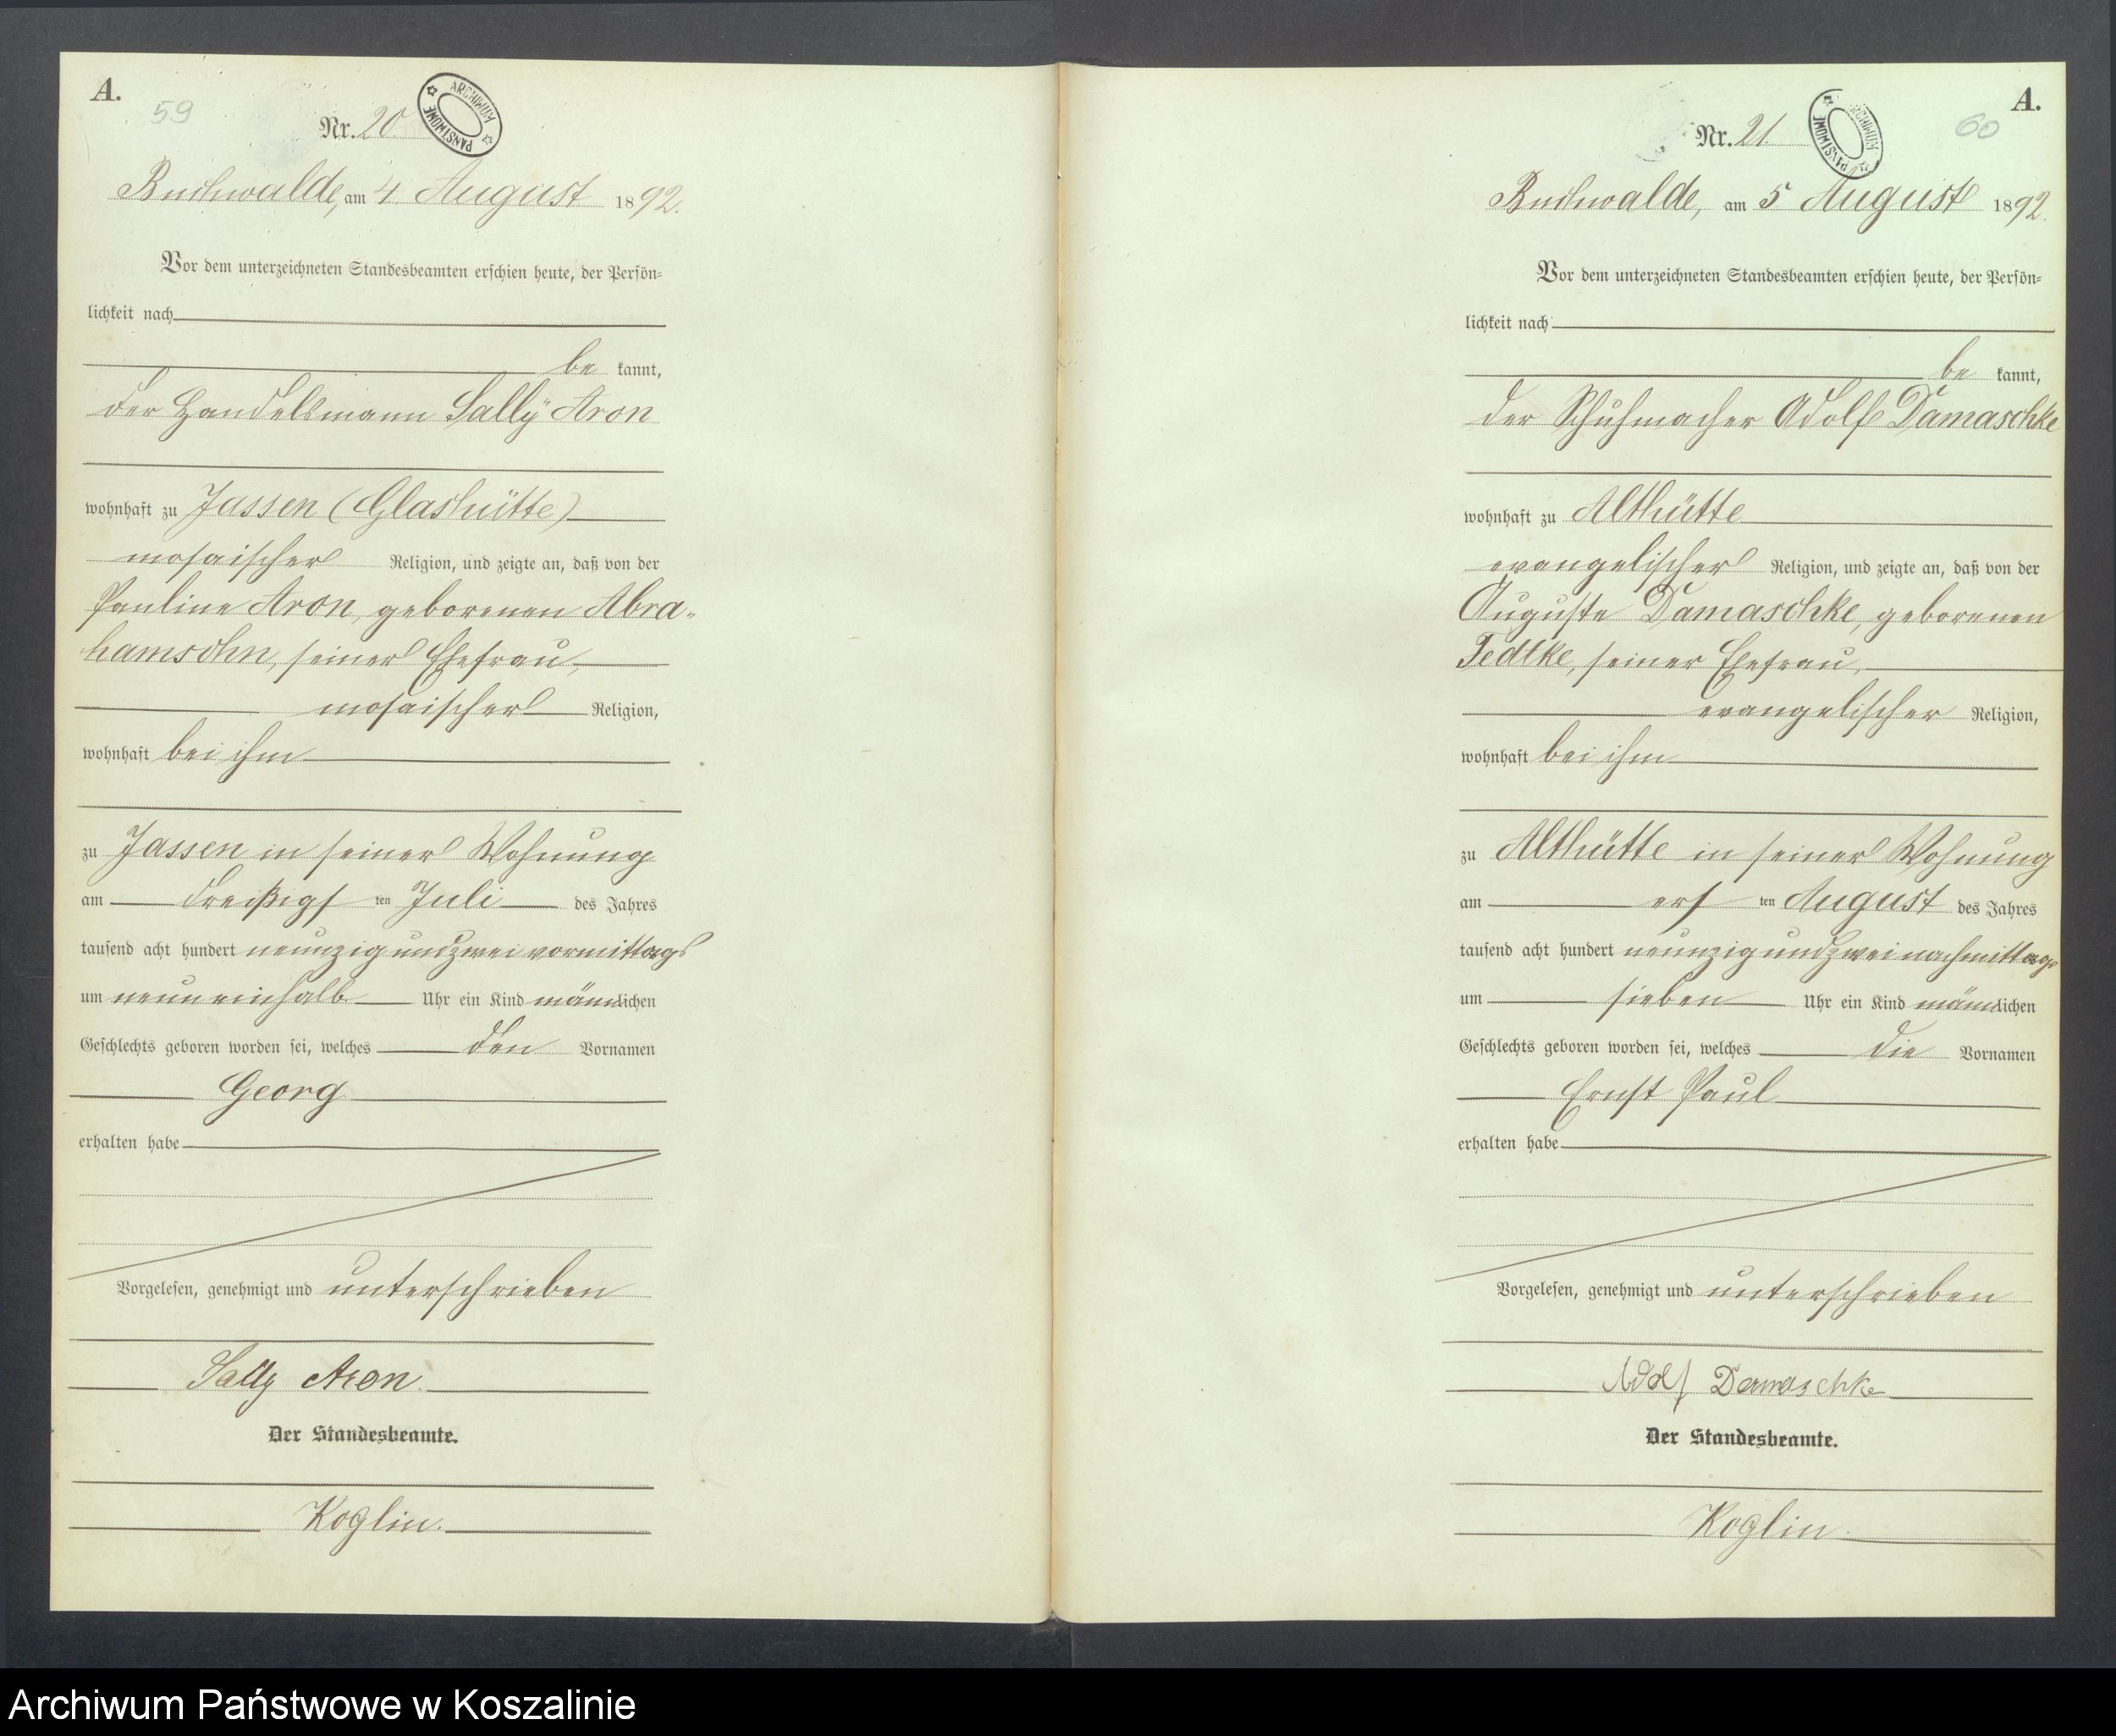 A.
59
Nr. 20.
ARCHIWUM PAŃSTWOWE
Buchwalde, am 4 August 1892.
Vor dem unterzeichneten Standesbeamten erschien heute, der Persön-
lichkeit nach
be kannt,
der Handelsmann Sally Aron
wohnhaft zu Jassen (Glashütte)
mosaischer Religion, und zeigte an, daß von der
Pauline Aron, geborenen Abra-
hamsohn, seiner Ehefrau,
mosaischer Religion,
wohnhaft bei ihm
zu Jassen in seiner Wohnung
am dreißigs ten Juli des Jahres
tausend acht hundert neunzig und zwei vormittags
um neun einhalb Uhr ein Kind männlichen
Geschlechts geboren worden sei, welches den Vornamen
Georg
erhalten habe
Vorgelesen, genehmigt und unterschrieben
Sally Aron.
Der Standesbeamte.
Koglin.
A.
60
Nr. 21.
ARCHIWUM PAŃSTWOWE
Buchwalde, am 5 August 1892.
Vor dem unterzeichneten Standesbeamten erschien heute, der Persön-
lichkeit nach
be kannt,
der Schuhmacher Adolf Damaschke
wohnhaft zu Althütte
evangelischer Religion, und zeigte an, daß von der
Auguste Damaschke, geborenen
Tedtke, seiner Ehefrau,
evangelischer Religion,
wohnhaft bei ihm
zu Althütte in seiner Wohnung
am ers ten August des Jahres
tausend acht hundert neunzig und zwei nachmittags
um sieben Uhr ein Kind männlichen
Geschlechts geboren worden sei, welches die Vornamen
Ernst Paul
erhalten habe
Vorgelesen, genehmigt und unterschrieben
Adolf Damaschke
Der Standesbeamte.
Koglin.
Archiwum Państwowe w Koszalinie